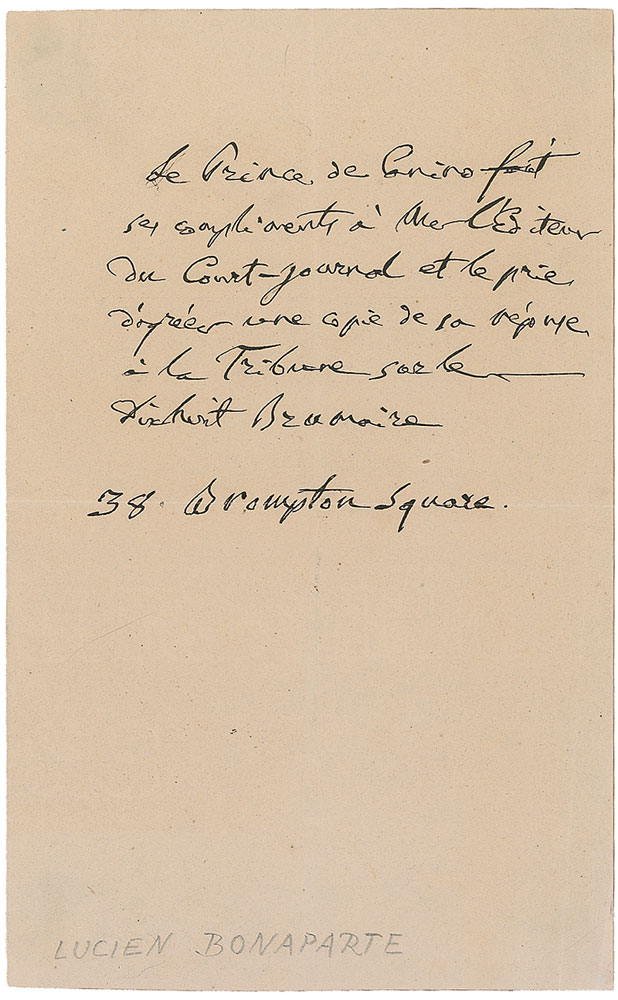 Le Prince de Canino fait
ses compliments à Mr L'Editeur
du Court-journal et le prie
d'agréer une copie de sa réponse
à la Tribune sur le
Dixhuit Brumaire
38 Brompton Square.
LUCIEN BONAPARTE